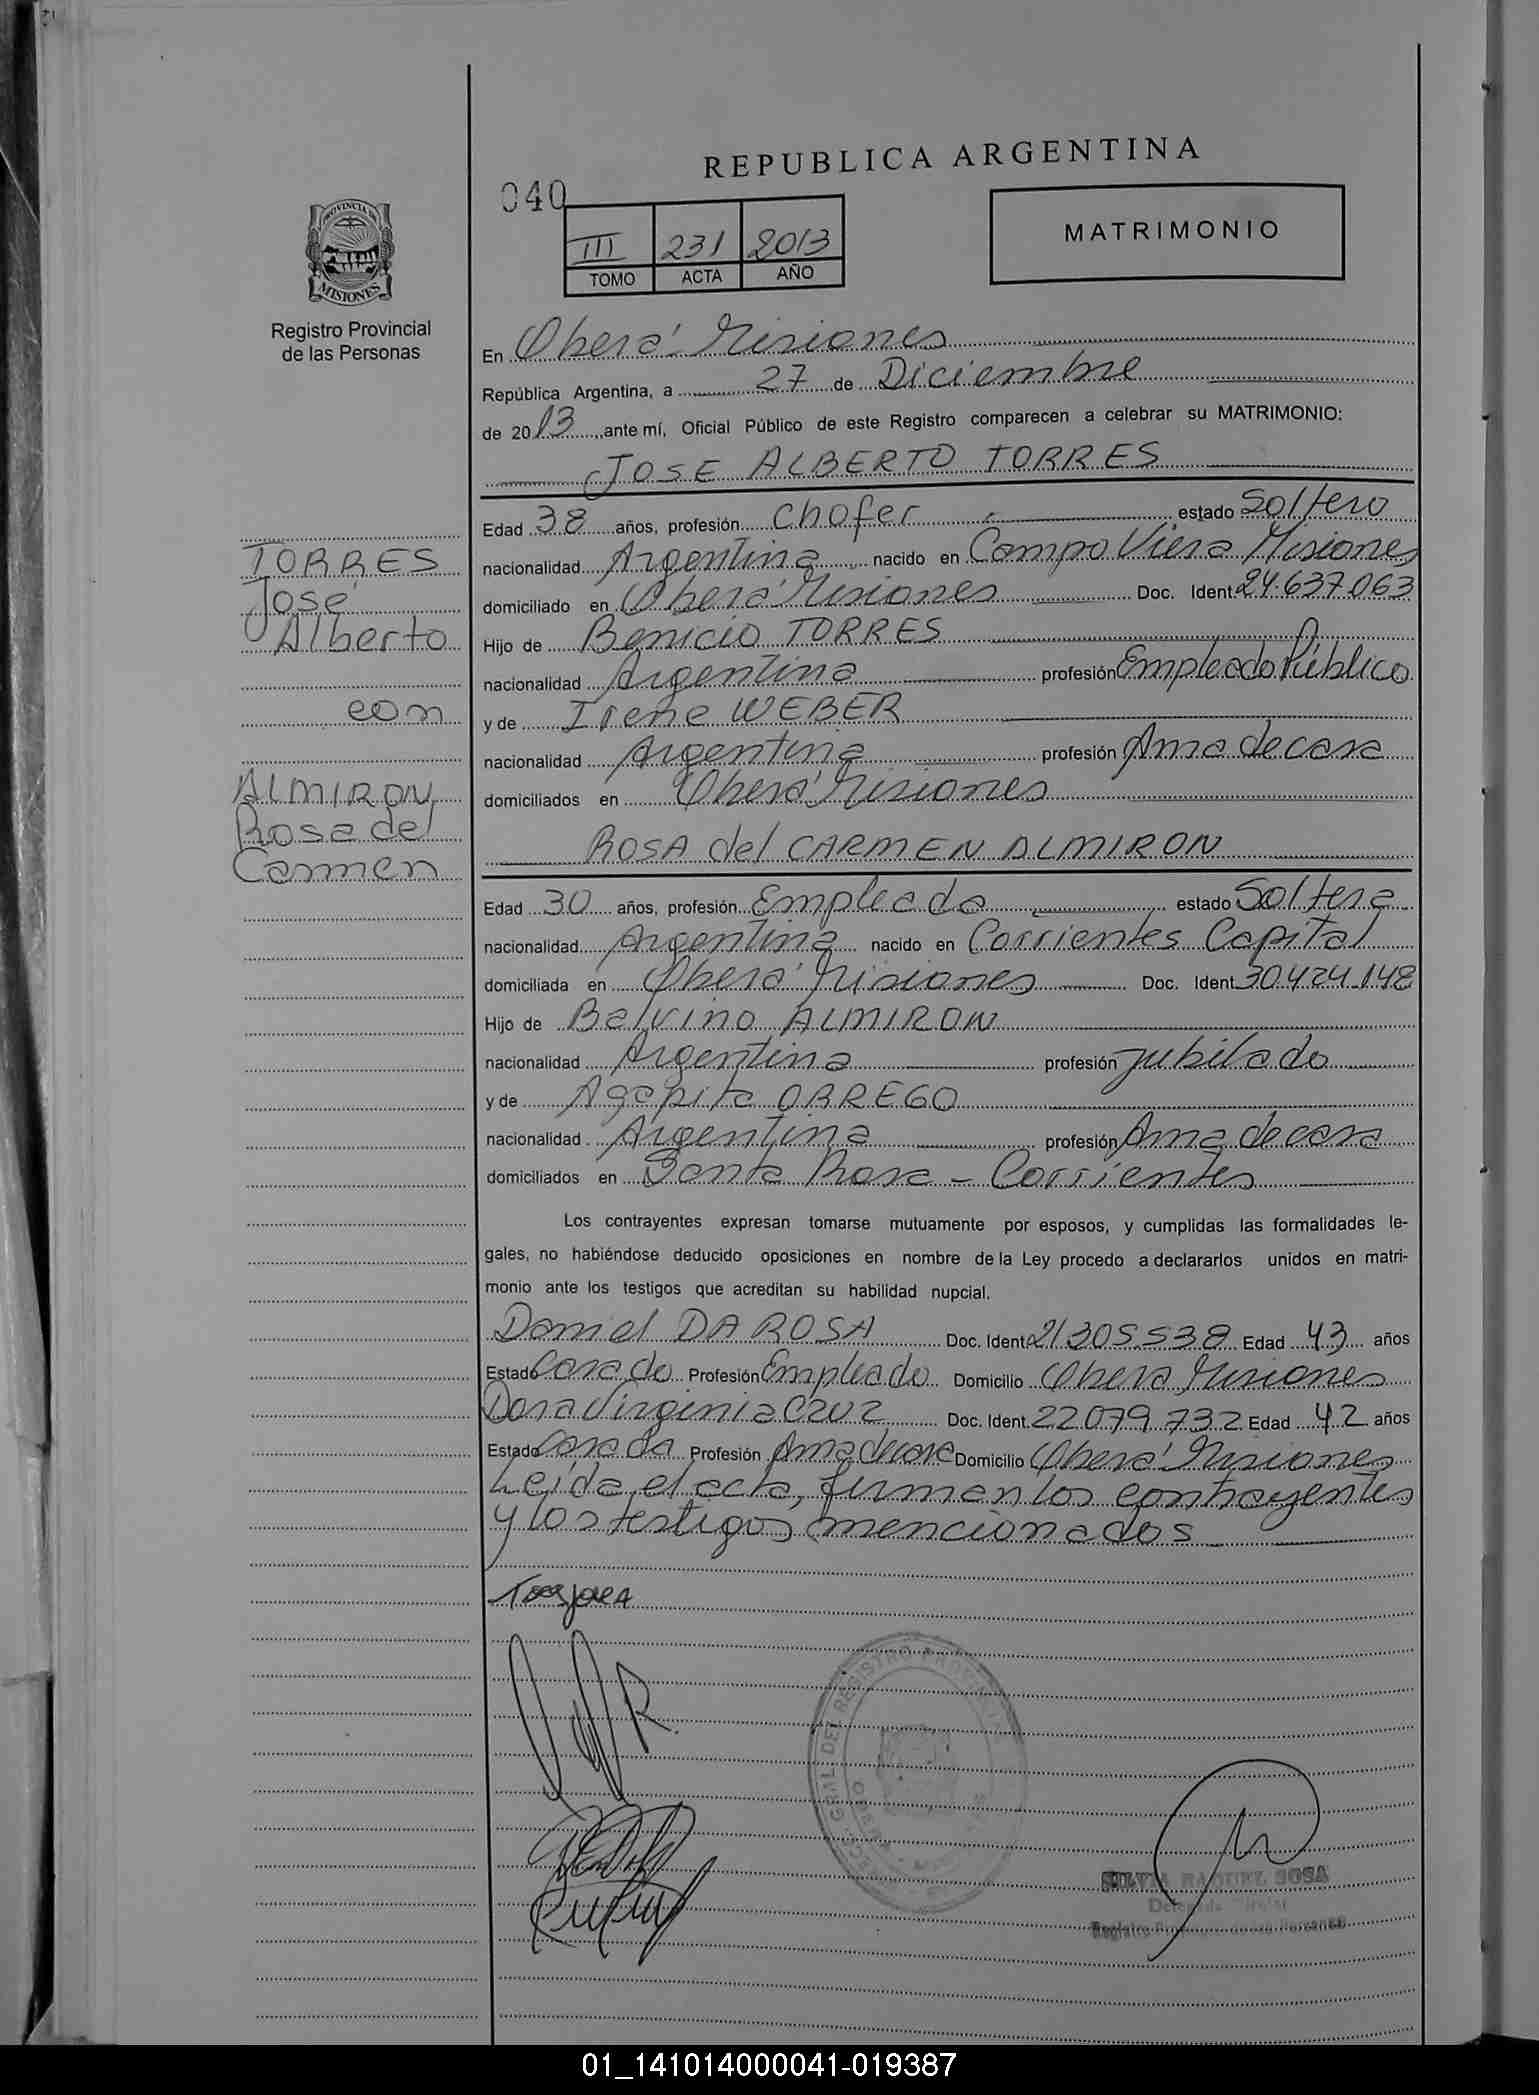 REPUBLICA ARGENTINA
040
III 231 2013
TOMO ACTA AÑO
MATRIMONIO
PROVINCIA DE
MISIONES
Registro Provincial
de las Personas
En Oberá Misiones
República Argentina, a 27 de Diciembre
de 2013, ante mí, Oficial Público de este Registro comparecen a celebrar su MATRIMONIO:
JOSE ALBERTO TORRES
Edad 38 años, profesión Chofer estado Soltero
nacionalidad Argentina nacido en Campo Viera Misiones
domiciliado en Oberá Misiones Doc. Ident. 24.637.063
Hijo de Benicio TORRES
nacionalidad Argentina profesión Empleado Público
y de Irene WEBER
nacionalidad Argentina profesión Ama de casa
domiciliados en Oberá Misiones
TORRES
José
Alberto
con
ALMIRON
Rosa del
Carmen
ROSA del CARMEN ALMIRON
Edad 30 años, profesión Empleada estado Soltera
nacionalidad Argentina nacido en Corrientes Capital
domiciliada en Oberá Misiones Doc. Ident. 30.424.148
Hijo de Balvino ALMIRON
nacionalidad Argentina profesión jubilado
y de Agapita ORREGO
nacionalidad Argentina profesión Ama de casa
domiciliados en Santa Rosa - Corrientes
Los contrayentes expresan tomarse mutuamente por esposos, y cumplidas las formalidades le-
gales, no habiéndose deducido oposiciones en nombre de la Ley procedo a declararlos unidos en matri-
monio ante los testigos que acreditan su habilidad nupcial.
Daniel DA ROSA Doc. Ident. 21305.538 Edad 43 años
Estado Casado Profesión Empleado Domicilio Oberá Misiones
Dora Virginia CRUZ Doc. Ident. 22079.732 Edad 42 años
Estado Casada Profesión Ama de casa Domicilio Oberá Misiones
Leída el acta, firman los contrayentes
y los testigos mencionados
GRAL DEL REGISTRO PROVINCIAL
SILVIA RAQUEL SOSA
Registro Provincial de las Personas
01_141014000041-019387